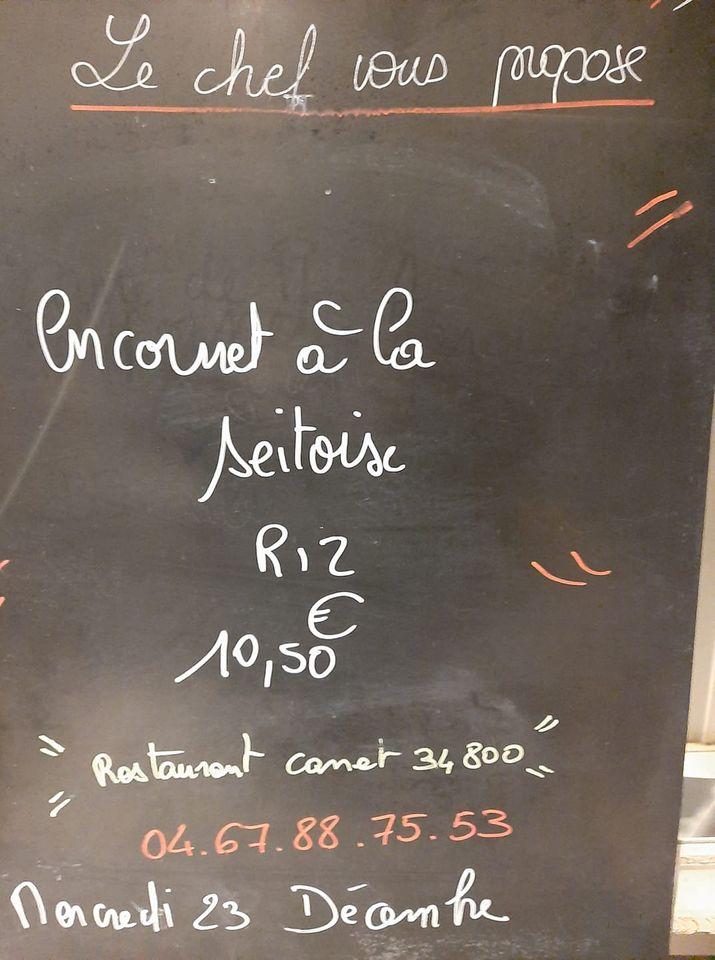 Le chef vous propose
Encornet à la
seitoise
Riz
€
10,50
Restaurant canet 34800
04.67.88.75.53
Mercredi 23 Décembre